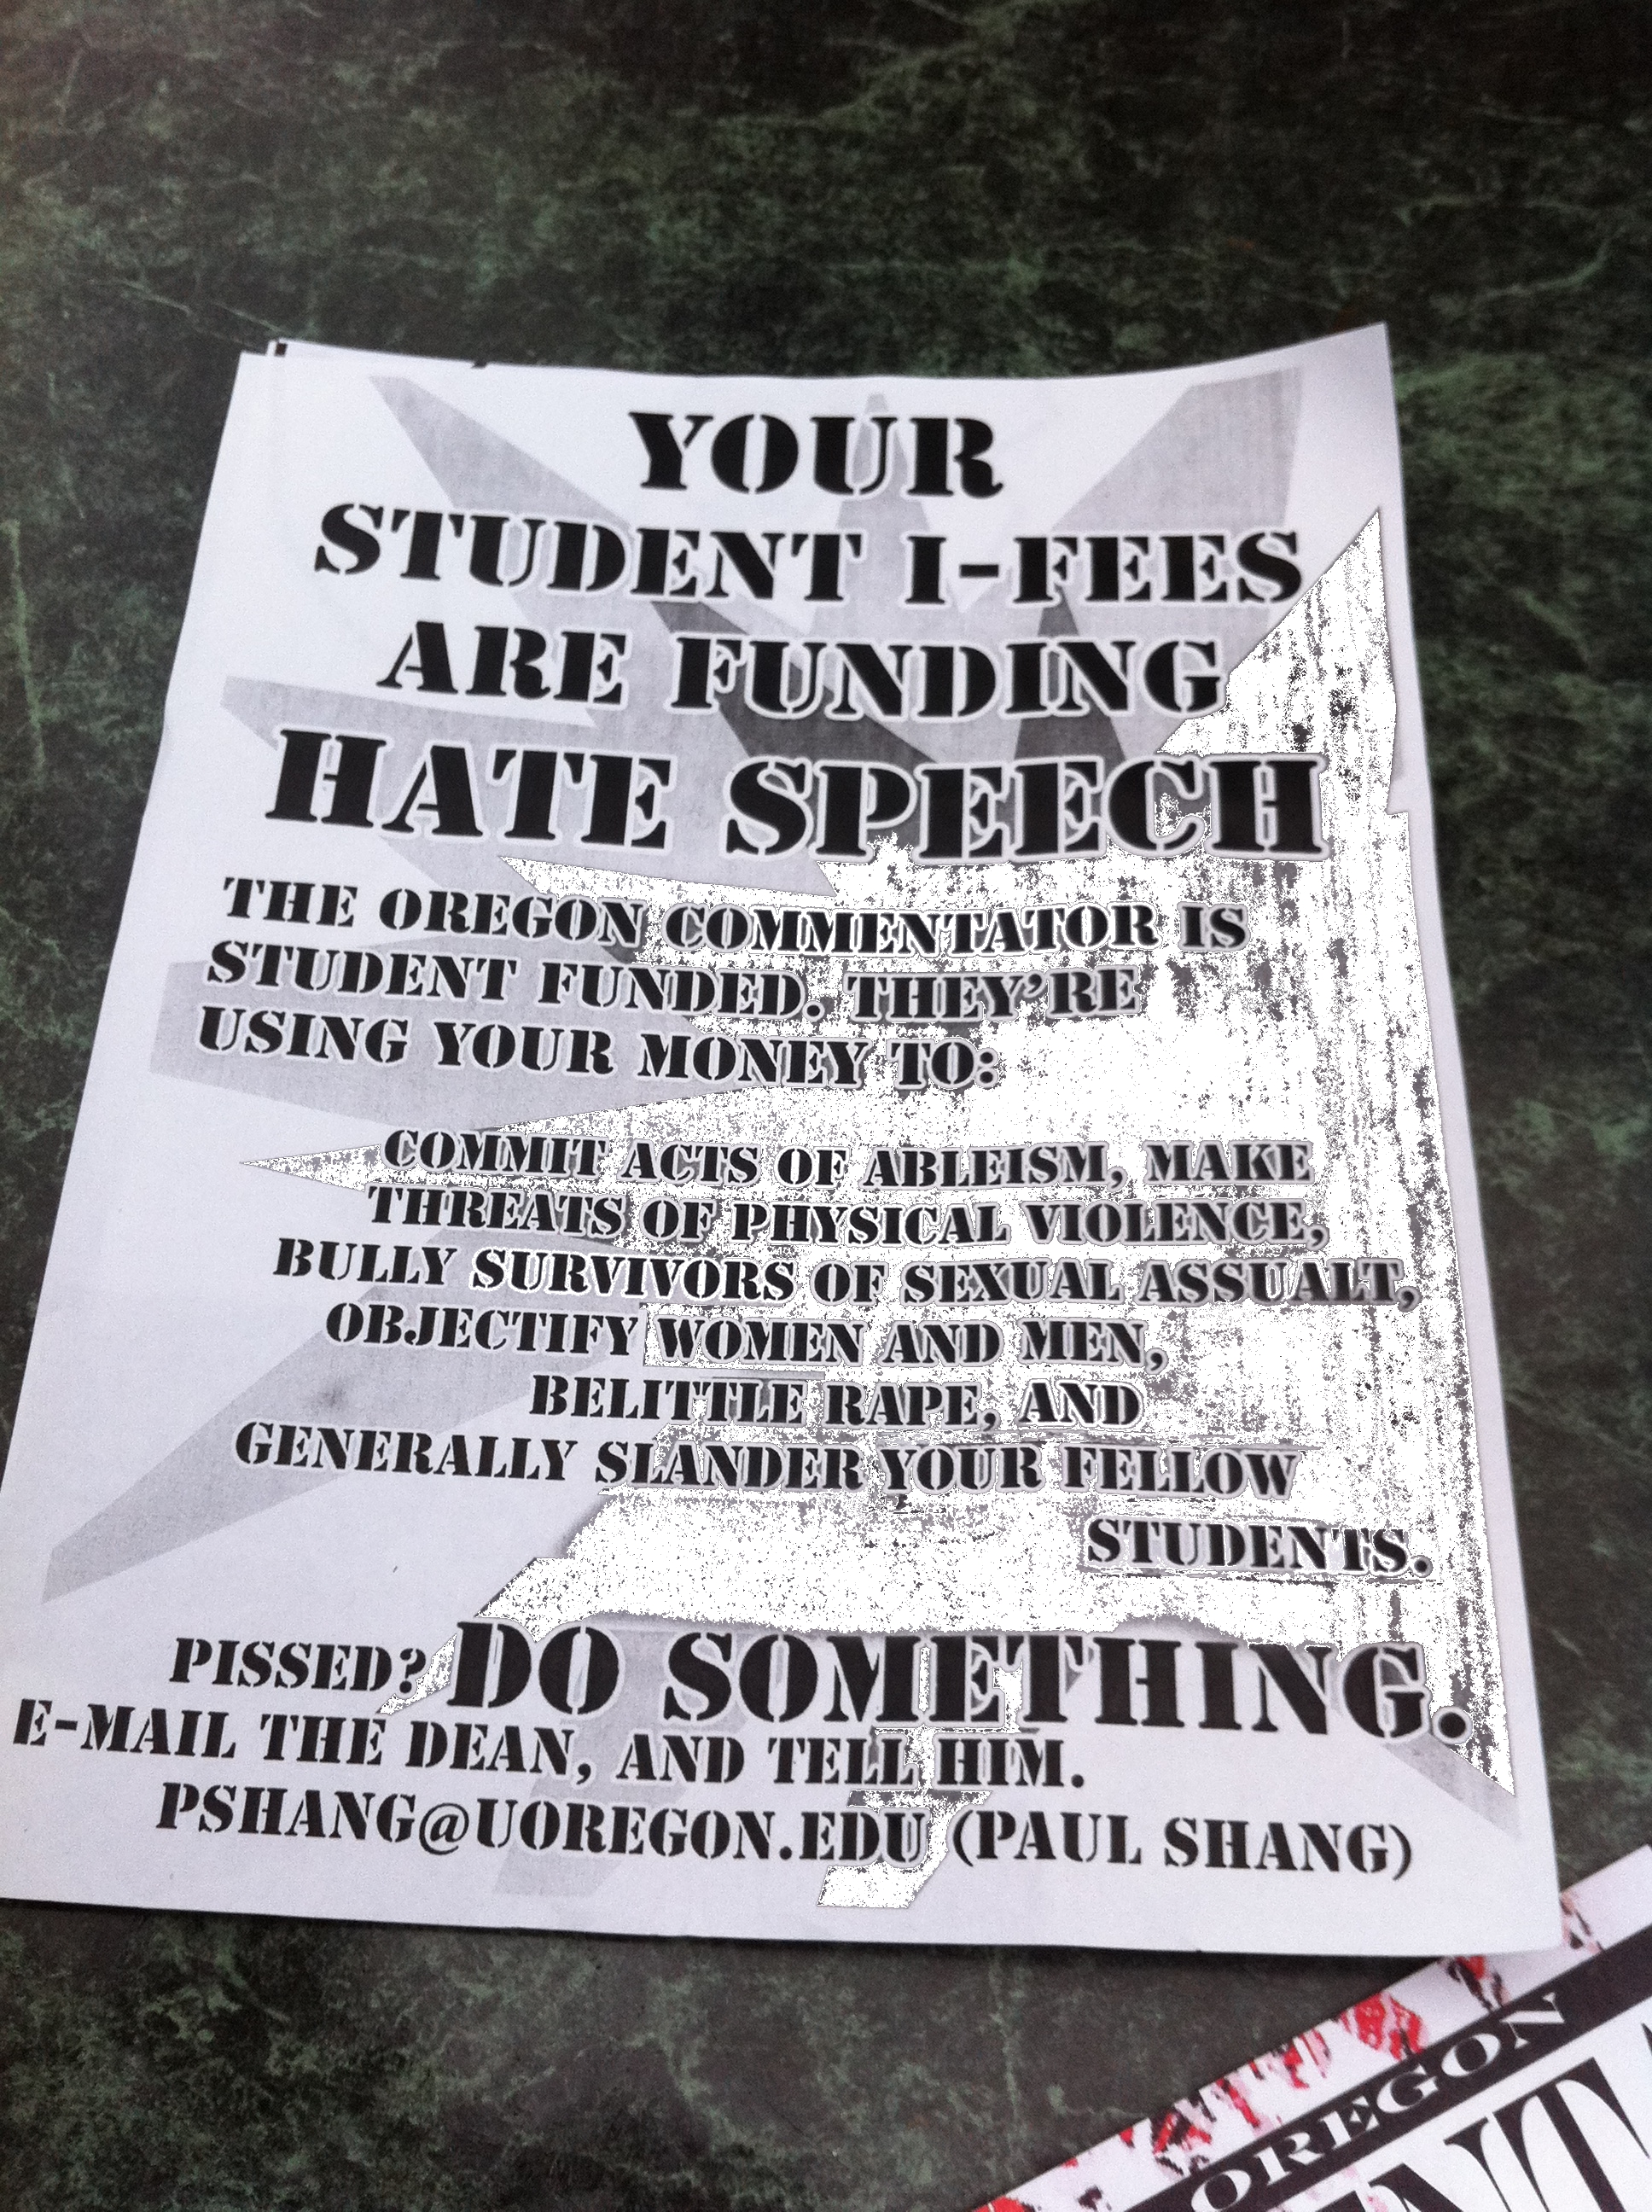 YOUR
STUDENT I-FEES
ARE FUNDING
HATE SPEECH
THE OREGON COMMENTATOR IS
STUDENT FUNDED. THEY'RE
USING YOUR MONEY TO:
COMMIT ACTS OF ABLEISM, MAKE
THREATS OF PHYSICAL VIOLENCE,
BULLY SURVIVORS OF SEXUAL ASSUALT,
OBJECTIFY WOMEN AND MEN,
BELITTLE RAPE, AND
GENERALLY SLANDER YOUR FELLOW
STUDENTS.
PISSED? DO SOMETHING.
E-MAIL THE DEAN, AND TELL HIM.
PSHANG@UOREGON.EDU (PAUL SHANG)
OREGON